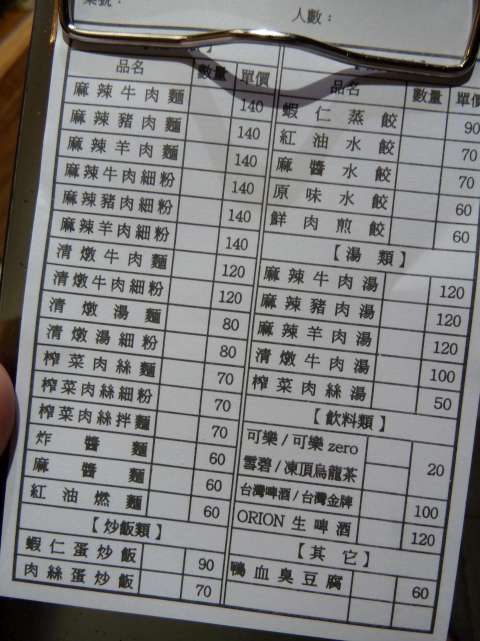 桌號：
人數：
品名 數量 單價
麻辣牛肉麵 140
麻辣豬肉麵 140
麻辣羊肉麵 140
麻辣牛肉細粉 140
麻辣豬肉細粉 140
麻辣羊肉細粉 140
清燉牛肉麵 120
清燉牛肉細粉 120
清燉湯麵 80
清燉湯細粉 80
榨菜肉絲麵 70
榨菜肉絲細粉 70
榨菜肉絲拌麵 70
炸醬麵 60
麻醬麵 60
紅油燃麵 60
【炒飯類】
蝦仁蛋炒飯 90
肉絲蛋炒飯 70
品名 數量 單價
蝦仁蒸餃 90
紅油水餃 70
麻醬水餃 70
原味水餃 60
鮮肉煎餃 60
【湯類】
麻辣牛肉湯 120
麻辣豬肉湯 120
麻辣羊肉湯 120
清燉牛肉湯 100
榨菜肉絲湯 50
【飲料類】
可樂/可樂zero
雪碧/凍頂烏龍茶 20
台灣啤酒/台灣金牌 100
ORION生啤酒 120
【其它】
鴨血臭豆腐 60